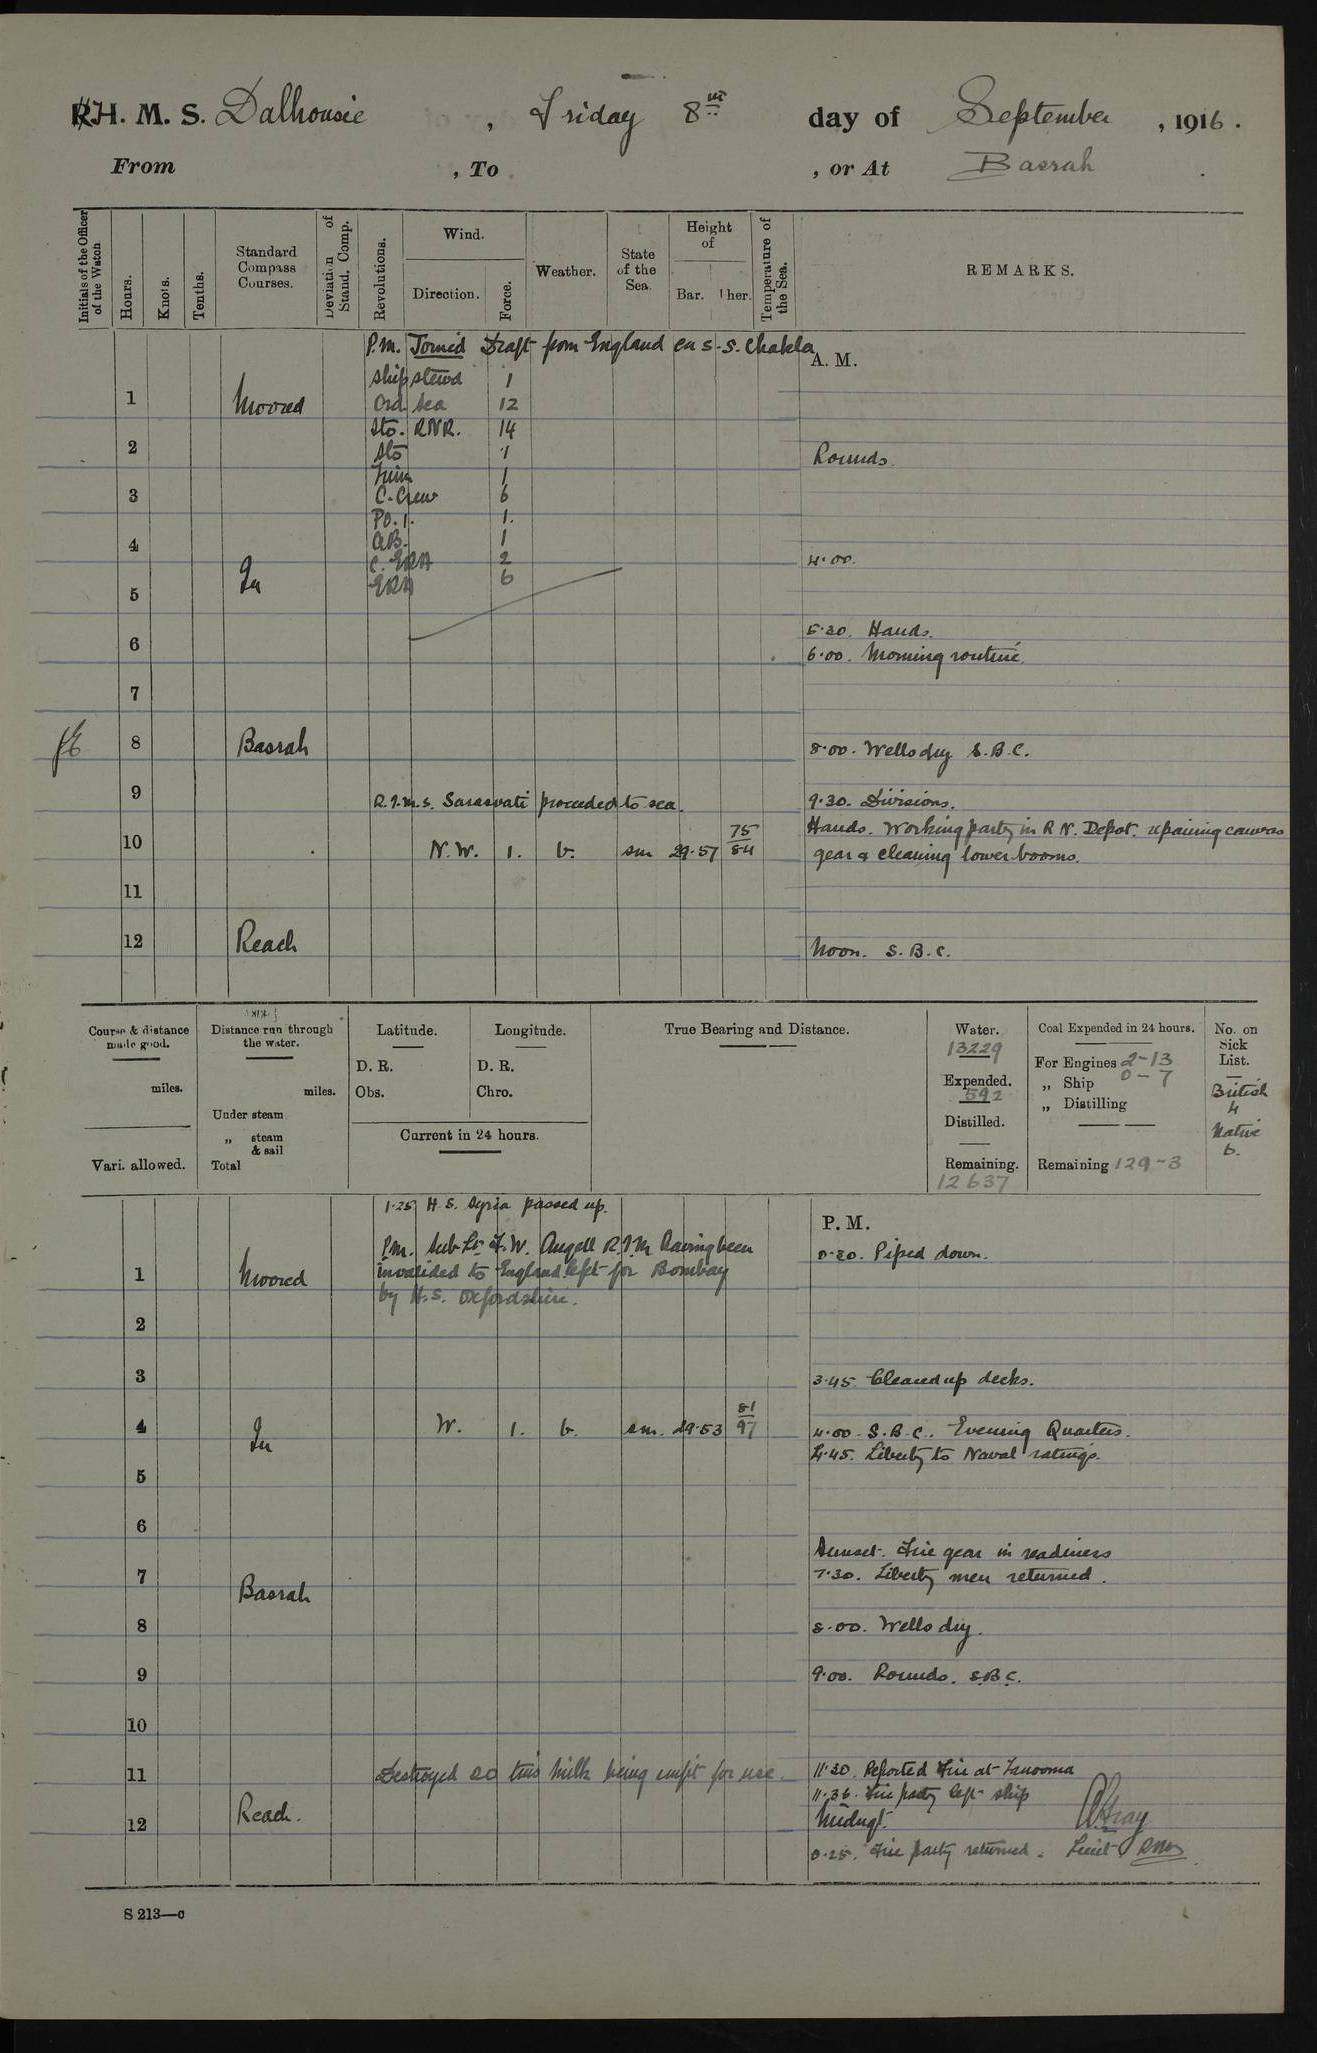 H. M. S. Dalhousie , Friday 8th day of September , 1916.
From , To , or At Basrah
Initials of the Officer of the Watch
Hours.
Knots.
Tenths.
Standard Compass Courses.
Deviation of Stand. Comp.
Revolutions.
Wind.
Direction.
Force.
Weather.
State of the Sea.
Height of
Bar. Ther.
Temperature of the Sea.
REMARKS.
P.M. Joined Draft from England ex S.S. Chakla
A. M.
Ship stewd 1
1 Moored Ord Sea 12
Sto. RNR. 14
2 Sto 1 Rounds.
1
3 C. Crew 6
PO. 1. 1.
4 AB. 1
C. ERA 2 4.00.
In ERA 6
5
5.30. Hands.
6
6.00. Morning routine.
7
8 Basrah 8.00. Wells dry S.B.C.
9 R.I.M.S. Sarasvati proceeded to sea. 9.30. Divisions.
Hands. Working party in R N. Depot. repairing canvas
10 N.W. 1. b. sm 29.57 75/84 gear & cleaning lower booms.
11
12 Reach Noon. S.B.C.
Course & distance made good.
miles.
Vari. allowed.
Distance run through the water.
miles.
Under steam
„ steam & sail
Total
Latitude.
D. R.
Obs.
Longitude.
D. R.
Chro.
Current in 24 hours.
True Bearing and Distance.
Water.
13229
Expended.
592
Distilled.
Remaining.
12637
Coal Expended in 24 hours.
For Engines 2-13
„ Ship 0-7
„ Distilling
Remaining 129-3
No. on Sick List.
British
4
Native
6.
1.25 H.S. Syria passed up.
P. M.
P.M. Sub Lt F.W. Angell R.I.M. having been 0.30. Piped down.
1 Moored invalided to England left for Bombay
by H.S. Oxfordshire.
2
3 3.45. Cleared up decks.
4 In W. 1. b. sm. 29.53 81/97 4.00. S.B.C. Evening Quarters.
4.45. Liberty to Naval ratings.
5
6
Sunset. Fire gear in readiness
7 7.30. Liberty men returned.
Basrah
8 8.00. Wells dry.
9 9.00. Rounds. S.B.C.
10
11 Destroyed 20 tins milk being unfit for use. 11.30. Reported Fire at Tanooma
11.36. Fire party left ship
12 Reach. Midngt.
0.25. Fire party returned. Lieut RIM
S 213—c